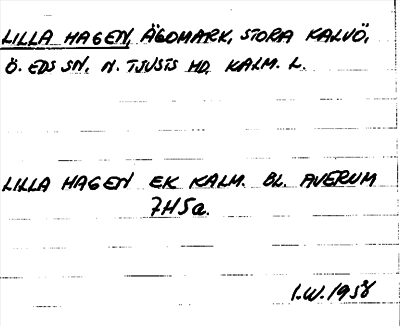 LILLA HAGEN, ÄGOMARK, STORA KALVÖ,
Ö. EDS SN. N. TJUSTS HD. KALM. L.
LILLA HAGEN EK KALM. BL. AVERUM
7H5a.
I.W. 1958